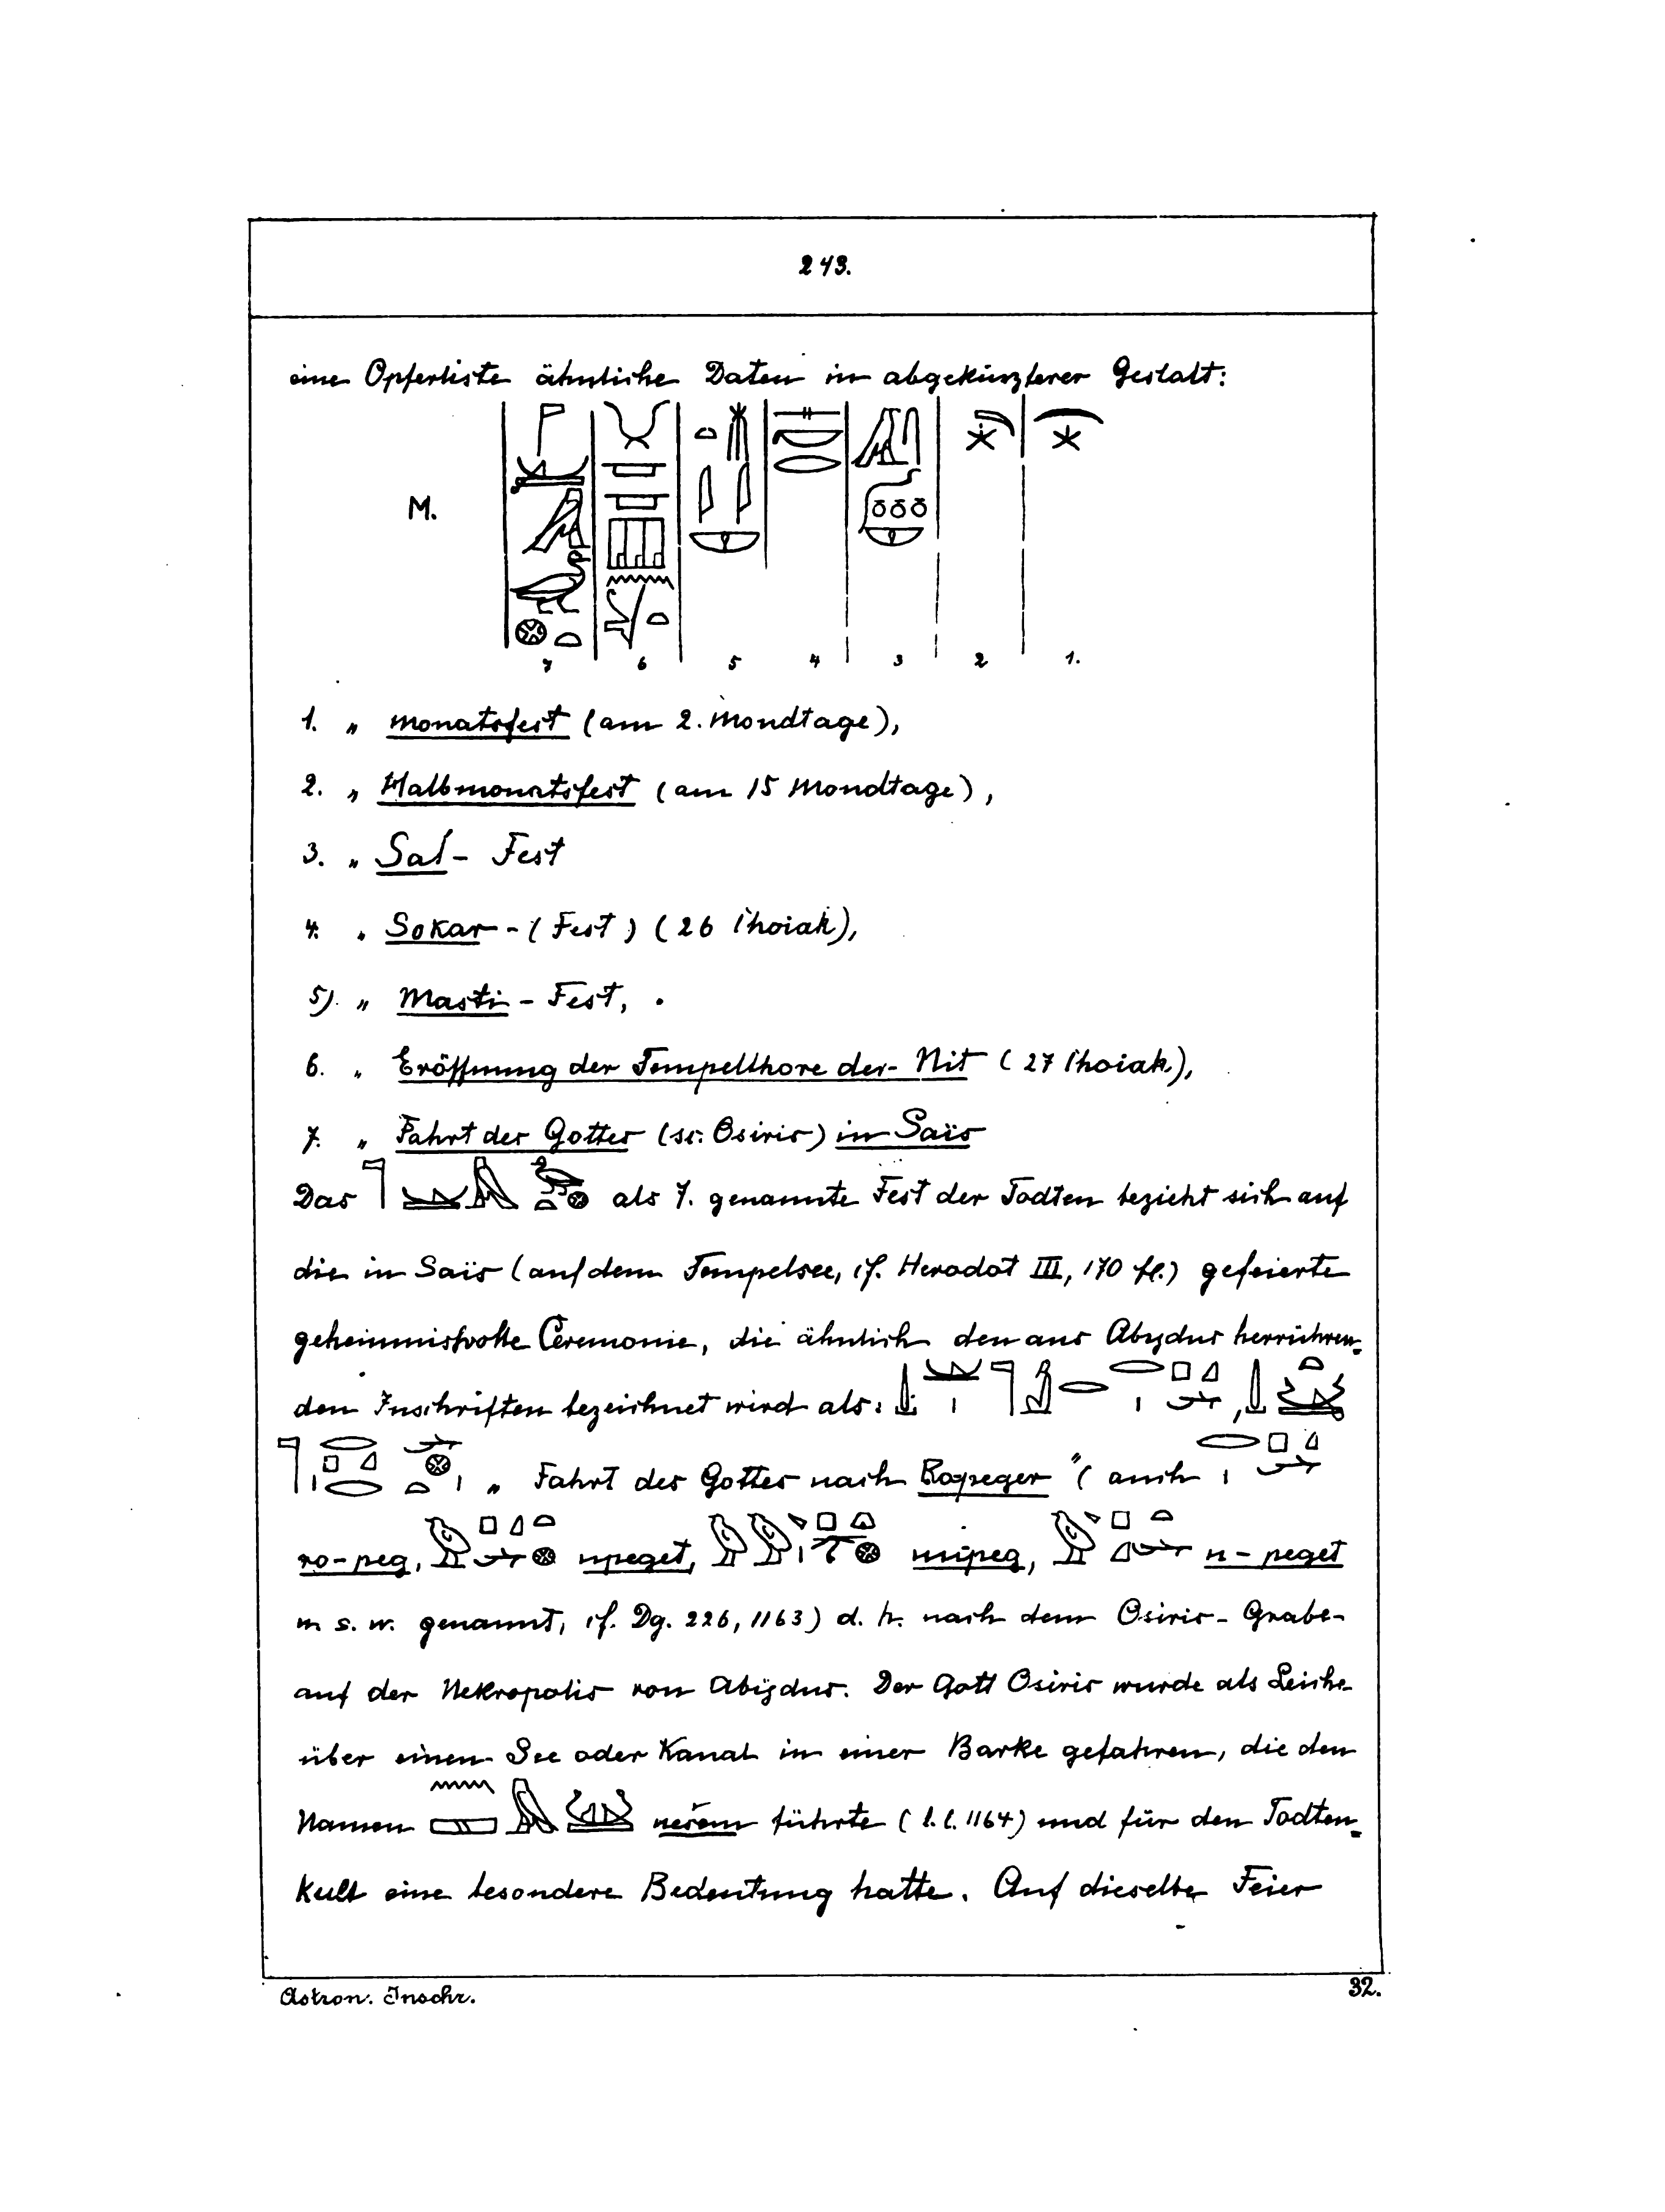 243.
eine Opferliste ähnliche Daten in abgekürzterer Gestalt:
M.
7 6 5 4 3 2 1.
1. „ Monatsfest (am 2. Mondtage),
2. „ Halbmonatsfest (am 15 Mondtage),
3. „ Sal- Fest
4. „ Sokar-(Fest) (26 Choiak),
5). „ Masti-Fest,
6. „ Eröffnung der Tempelthore der Nit (27 Choiak),
7. „ Fahrt des Gottes (sc. Osiris) in Saïs
Das als 7. genannte Fest der Todten bezieht sich auf
die in Saïs (auf dem Tempelsee, cf. Herodot III, 170 fl.) gefeierte
geheimnisvolle Ceremonie, die ähnlich den aus Abydus herrühren-
den Inschriften bezeichnet wird als: ,
„ Fahrt des Gottes nach Ropeger" (auch
ro-peg, upeget, uupeg, u-peget
u. s. w. genannt, cf. Dg. 226, 1163) d. h. nach dem Osiris-Grabe
auf der Nekropolis von Abydus. Der Gott Osiris wurde als Leiche
über einen See oder Kanal in einer Barke gefahren, die den
Namen nešem führte (l.l. 1164) und für den Todten-
Kult eine besondere Bedeutung hatte. Auf dieselbe Feier
Astron. Inschr. 32.